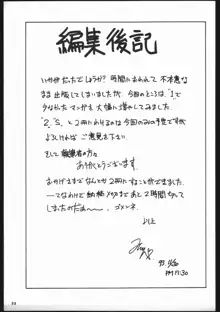 編集後記
いかがだったでしょうか?時間におわれて不本意な
まま出版してしまいましたが、今回のところは、「1で
少なかったマンガも大幅に増やしてみました。
「2、「3、と2冊にわけるのは今回のみの予定ですが
よろしければご意見を下さい。
そして執筆者の方々
ありがとうございます。
おかげさまでなんとか2冊にすることができました。
ーてなわけで納稿〆切まであと2時間切って
しまったのだぁ〜〜。ゴメンネ
以上
PM 11:30